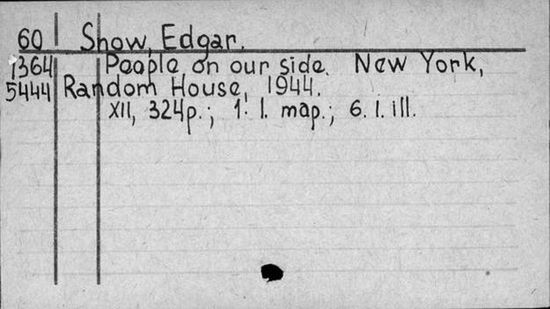 60 Snow, Edgar.
1364 People on our side. New York,
5444 Random House, 1944.
XII, 324p.; 1. l. map.; 6. l. ill.